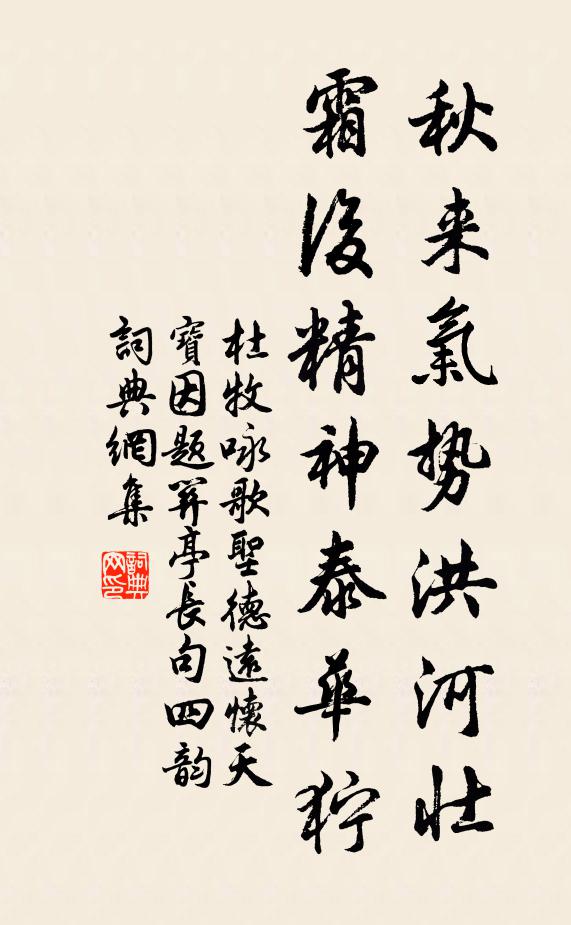 秋来氣势洪河壮
霜後精神泰華狞
杜牧咏歌聖德遠懷天
寶因题関亭長句四韵
詞典網集
詞典网印